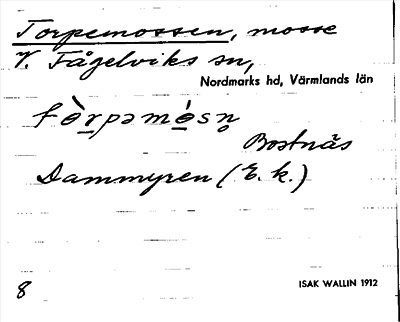 Torpemossen, mosse
V. Fågelviks sn,
Nordmarks hd, Värmlands län
tò̱rpəmó̱sn̥
Bostnäs
Dammyren (E. k.)
8
ISAK WALLIN 1912